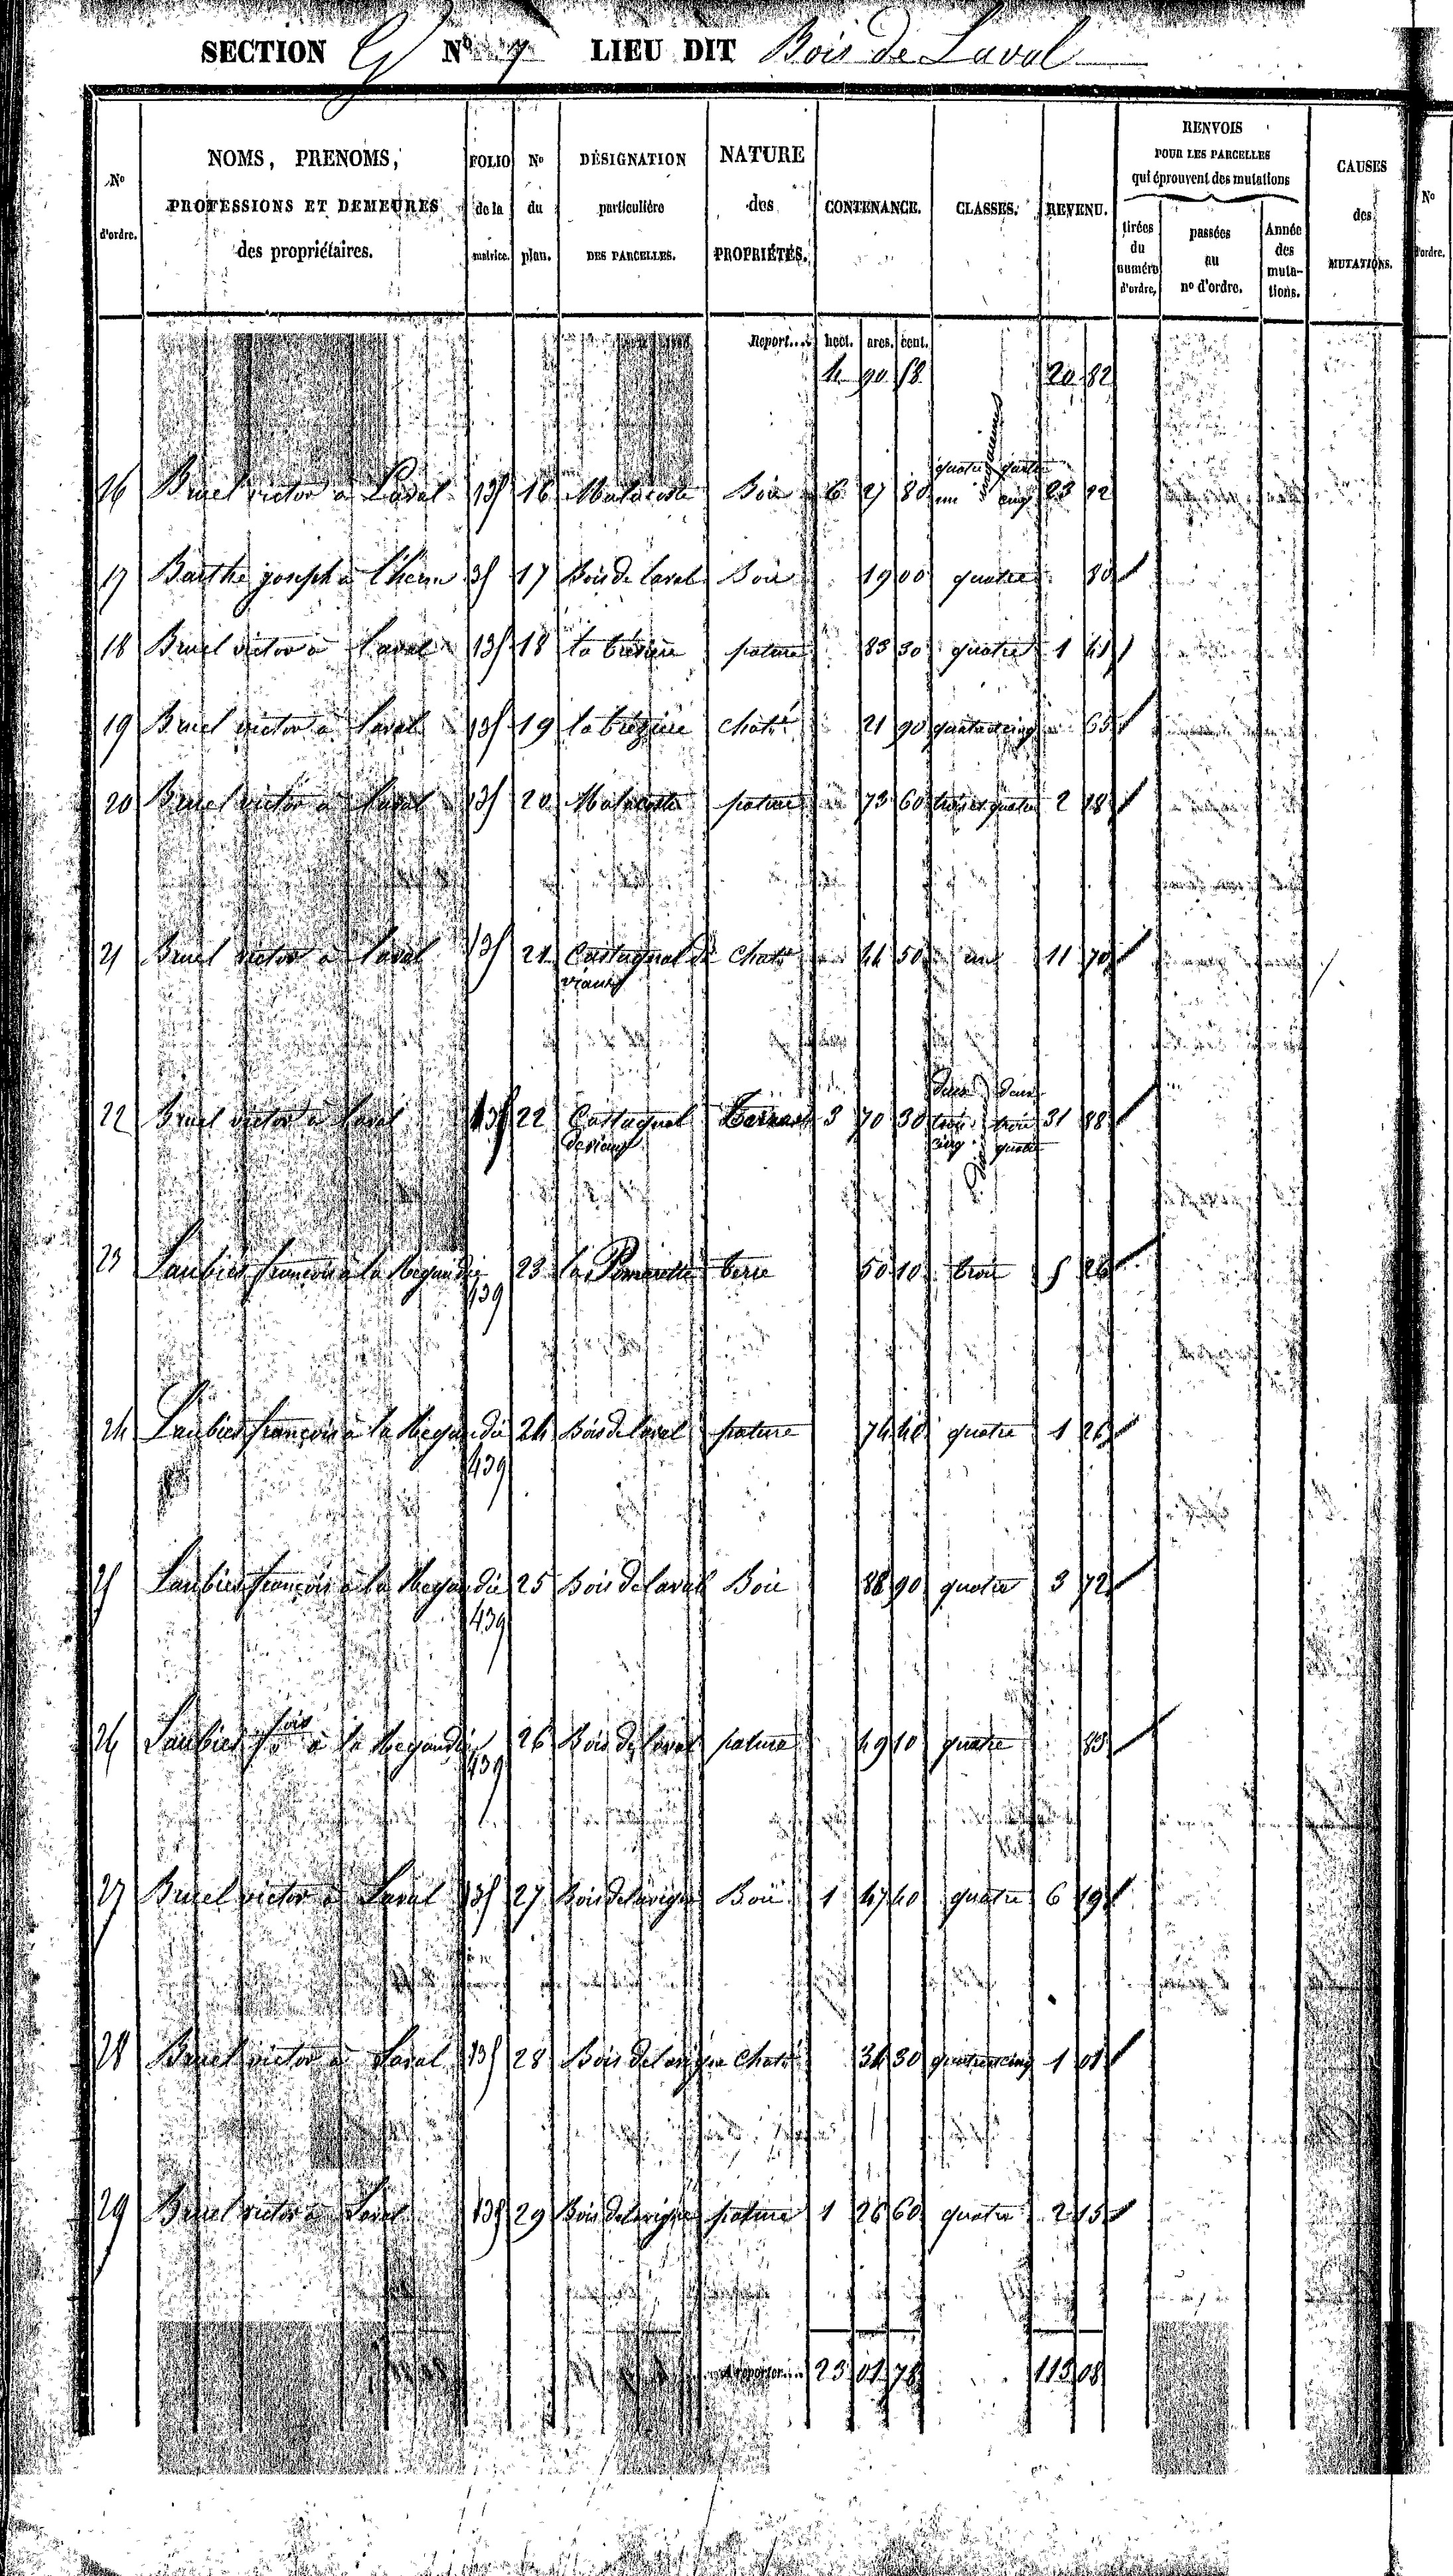 SECTION G N° 7 LIEU DIT Bois de Laval
N° d'ordre. NOMS, PRENOMS, PROFESSIONS ET DEMEURES des propriétaires. FOLIO de la matrice. N° du plan. DÉSIGNATION particulière DES PARCELLES. NATURE des PROPRIÉTÉS. CONTENANCE. CLASSES. REVENU. RENVOIS POUR LES PARCELLES qui éprouvent des mutations tirées du numéro d'ordre, passées au n° d'ordre. Année des muta-tions. CAUSES des MUTATIONS. N° d'ordre.
Report.... hect. ares. cent.
90 58 20 82
16 Bruel victor à Laval 135 16 Malacoste Bois 6 27 80 quatre cinq 23 92
17 Barthe joseph à 35 17 Bois de Laval Bois 19 00 quatre 80
18 Bruel victor à Laval 135 18 pature 83 30 quatre 1 41
19 Bruel victor à Laval 135 19 la Chatr 21 90 quatre et cinq 65
20 Bruel victor à Laval 135 20 Malacoste pature 73 60 trois et quatre 2 18
21 Bruel victor à Laval 135 21 Castagnal de Chatr 44 50 une 11 70
vieux
22 Bruel victor à Laval 135 22 Castagnal 3 70 30 deux trois cinq deux trois quatre 31 88
de vieux
23 Laubies françois à la 439 23 la terre 50 10 trois 5 26
24 Laubies françois à la 439 24 Bois de laval pature 74 40 quatre 1 26
25 Laubies françois à la 439 25 Bois de laval Bois 88 90 quatre 3 72
26 Laubies fois à la 439 26 Bois de laval pature 49 10 quatre 83
27 Bruel victor à Laval 135 27 Bois de lavigne Bois 1 47 40 quatre 6 19
28 Bruel victor à Laval 135 28 Bois de lavigne Chatr 34 30 quatre et cinq 1 01
29 Bruel victor à Laval 135 29 Bois de lavigne pature 1 26 60 quatre 2 15
A reporter.... 23 01 78 113 08